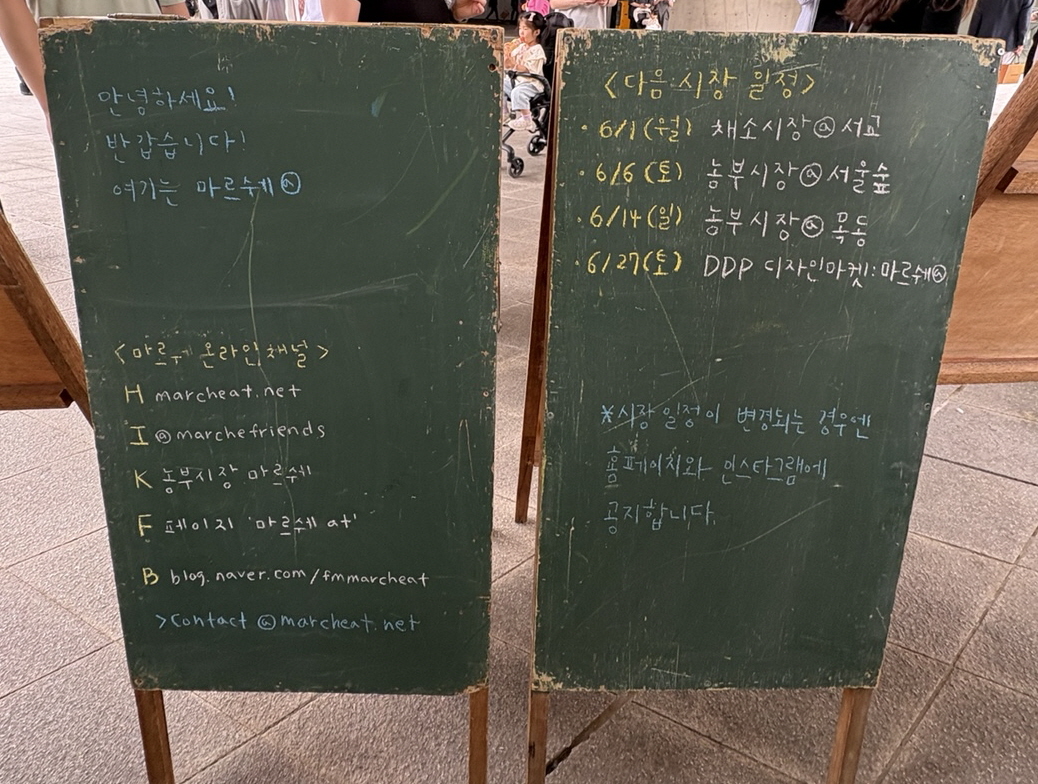 안녕하세요!
반갑습니다!
여기는 마르쉐@
<마르쉐 온라인 채널>
H marcheat.net
I @marchefriends
K 농부시장 마르쉐
F 페이지 '마르쉐 at'
B blog.naver.com/fmmarcheat
>contact@marcheat.net
<다음 시장 일정>
· 6/1(월) 채소시장@서교
· 6/6(토) 농부시장@서울숲
· 6/14(일) 농부시장@목동
· 6/27(토) DDP 디자인마켓:마르쉐@
*시장 일정이 변경되는 경우엔
홈페이지와 인스타그램에
공지합니다.